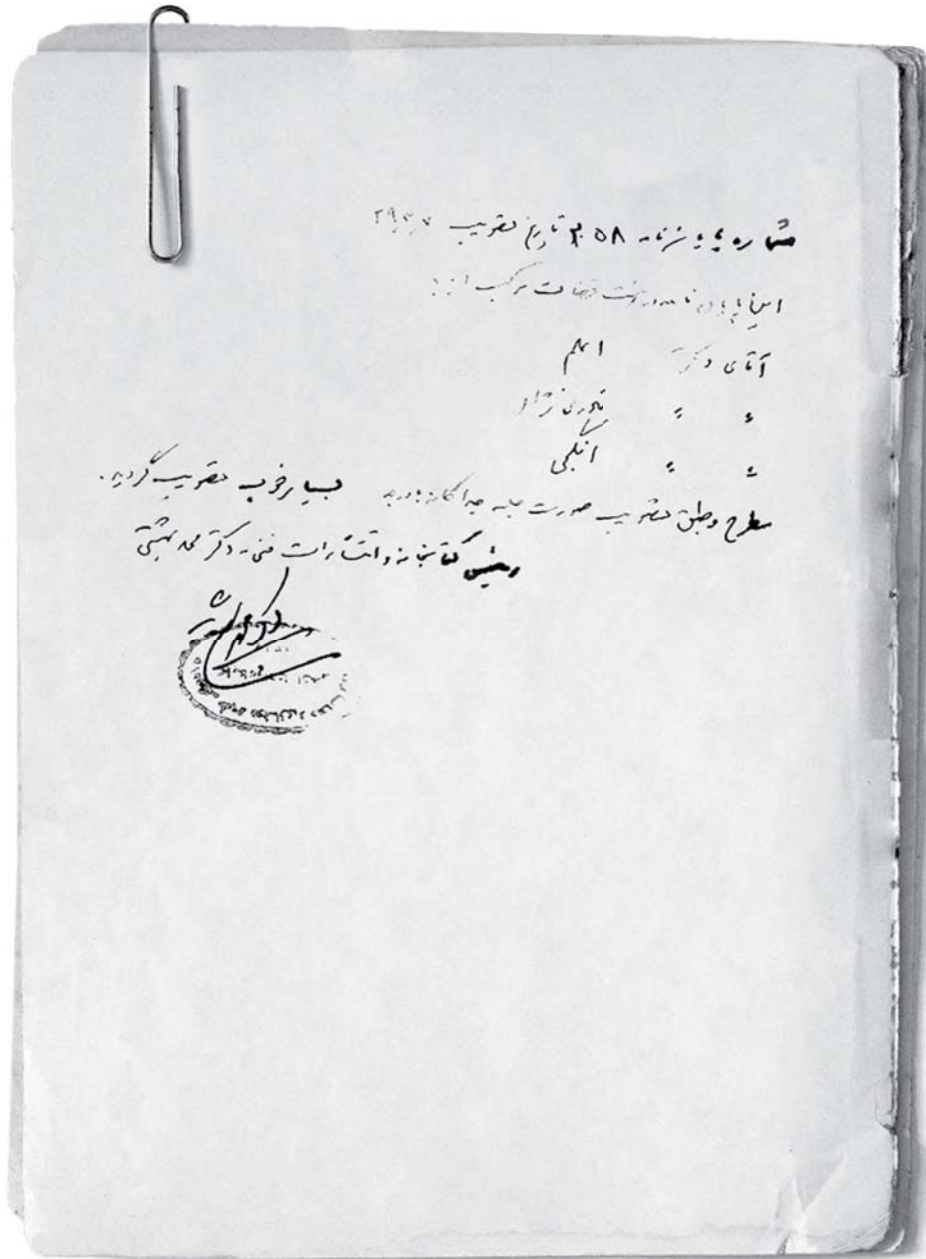 شماره پایان نامه ۳۰۵۸ تاریخ تصویب
این پایان نامه در هیئت قضات مرکب از:
آقای دکتر اعلم
〃 〃 نادری نژاد
〃 〃
مطرح و طبق تصویب صورت جلسه جداگانه بادرجه بسیار خوب تصویب گردید.
رئیس کتابخانه و انتشارات فنی - دکتر محمد بهشتی